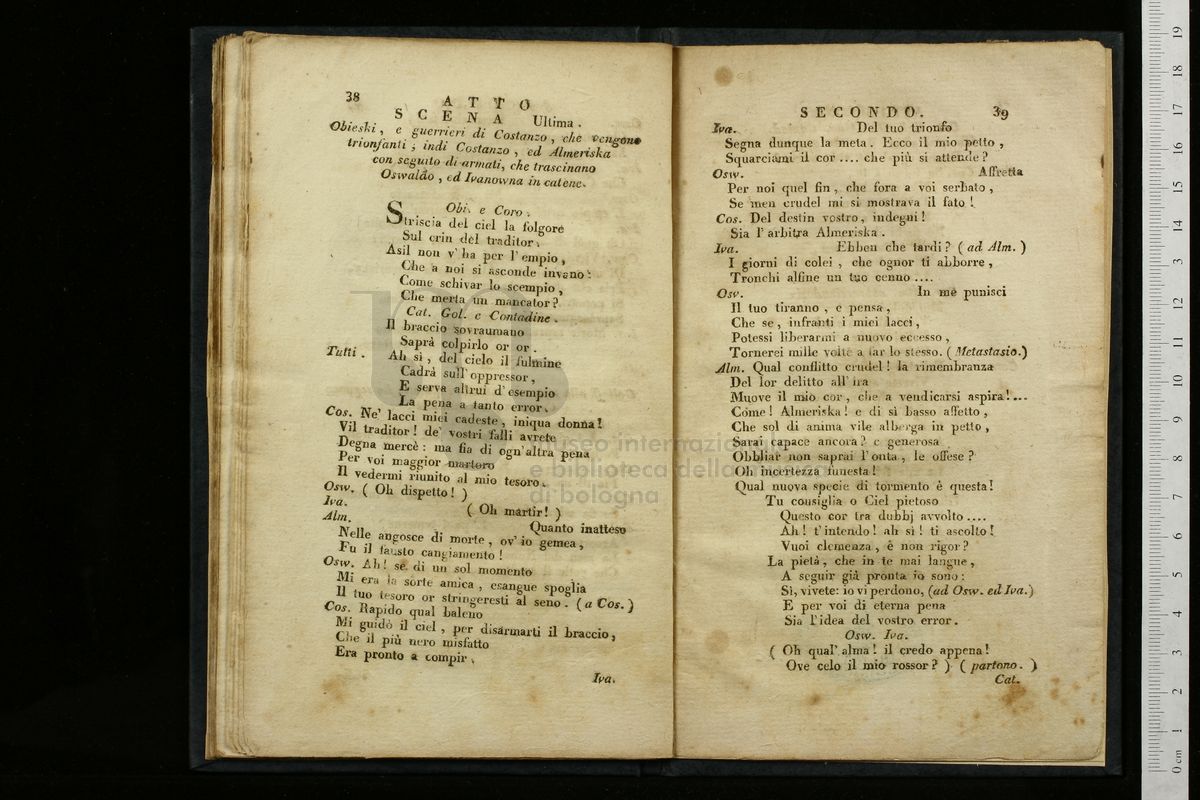 38
ATTO
SCENA Ultima.
Obieski, e guerrieri di Costanzo, che vengono
trionfanti; indi Costanzo, ed Almeriska
con seguito di armati, che trascinano
Oswaldo, ed Ivanowna in catene.
Obi. e Coro.
Striscia del ciel la folgore
Sul crin del traditor.
Asil non v'ha per l'empio,
Che a noi si asconde invano:
Come schivar lo scempio,
Che merta un mancator?
Cat. Gol. e Contadine.
Il braccio sovraumano
Saprà colpirlo or or.
Tutti. Ah sì, del cielo il fulmine
Cadrà sull'oppressor,
E serva altrui d'esempio
La pena a tanto error.
Cos. Ne' lacci miei cadeste, iniqua donna!
Vil traditor! de' vostri falli avrete
Degna mercè: ma fia di ogn'altra pena
Per voi maggior martoro
Il vedermi riunito al mio tesoro.
Osw. ( Oh dispetto! )
Iva. ( Oh martir! )
Alm. Quanto inatteso
Nelle angosce di morte, ov'io gemea,
Fu il fausto cangiamento!
Osw. Ah! se di un sol momento
Mi era la sorte amica, esangue spoglia
Il tuo tesoro or stringeresti al seno. (a Cos.)
Cos. Rapido qual baleno
Mi guidò il ciel, per disarmarti il braccio,
Che il più nero misfatto
Era pronto a compir.
Iva.
SECONDO. 39
Iva. Del tuo trionfo
Segna dunque la meta. Ecco il mio petto,
Squarciami il cor.... che più si attende?
Osw. Affretta
Per noi quel fin, che fora a voi serbato,
Se men crudel mi si mostrava il fato!
Cos. Del destin vostro, indegni!
Sia l'arbitra Almeriska.
Iva. Ebben che tardi? (ad Alm.)
I giorni di colei, che ognor ti abborre,
Tronchi alfine un tuo cenno....
Osw. In me punisci
Il tuo tiranno, e pensa,
Che se, infranti i miei lacci,
Potessi liberarmi a nuovo eccesso,
Tornerei mille volte a far lo stesso. (Metastasio.)
Alm. Qual conflitto crudel! la rimembranza
Del lor delitto all'ira
Muove il mio cor, che a vendicarsi aspira!...
Come! Almeriska! e di sì basso affetto,
Che sol di anima vile alberga in petto,
Sarai capace ancora? e generosa
Obbliar non saprai l'onta, le offese?
Oh incertezza funesta!
Qual nuova specie di tormento è questa!
Tu consiglia o Ciel pietoso
Questo cor tra dubbj avvolto....
Ah! t'intendo! ah sì! ti ascolto!
Vuoi clemenza, e non rigor?
La pietà, che in te mai langue,
A seguir già pronta io sono:
Sì, vivete: io vi perdono, (ad Osw. ed Iva.)
E per voi di eterna pena
Sia l'idea del vostro error.
Osw. Iva.
( Oh qual'alma! il credo appena!
Ove celo il mio rossor? ) (partono.)
Cat.